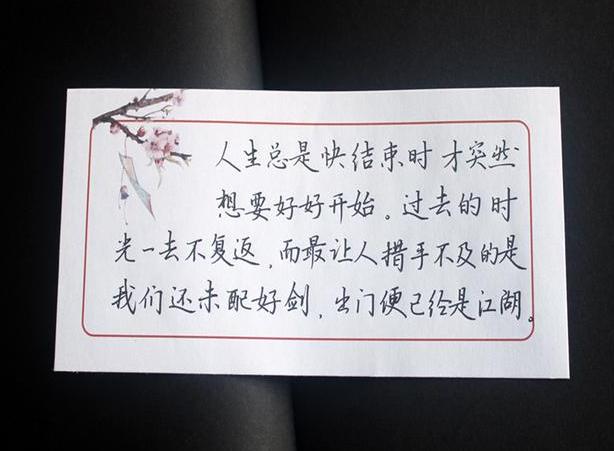 人生总是快结束时才突然
想要好好开始。过去的时
光一去不复返,而最让人措手不及的是
我们还未配好剑,出门便已经是江湖。